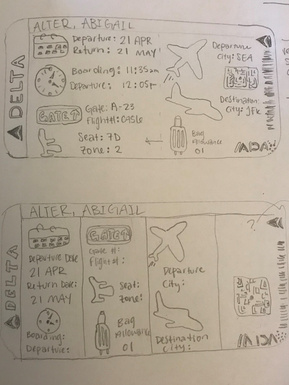 ALTER, ABIGAIL
DELTA
Departure: 21 APR
Return: 21 MAY
Boarding: 11:35am
Departure: 12:05p
GATE
Gate: A-23
Seat: 7D
Zone: 2
Departure
City: SEA
Destination
City: JFK
Bag
Allowance
01
ALTER, ABIGAIL
DELTA
Departure Date
21 APR
Return Date:
21 MAY
Boarding:
Departure:
GATE
Gate #:
Flight #:
Seat:
Zone:
Bag
Allowance
01
Departure
City:
Destination
City:
?